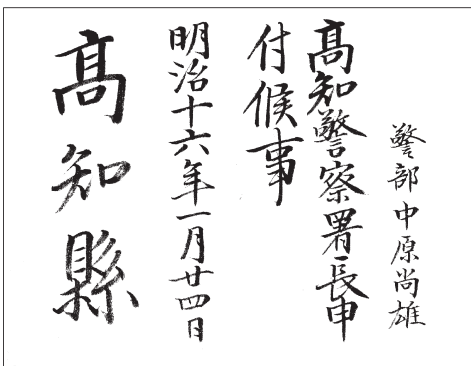 警部中原尚雄
髙知警察署長申
付候事
明治十六年一月廿四日
髙知縣